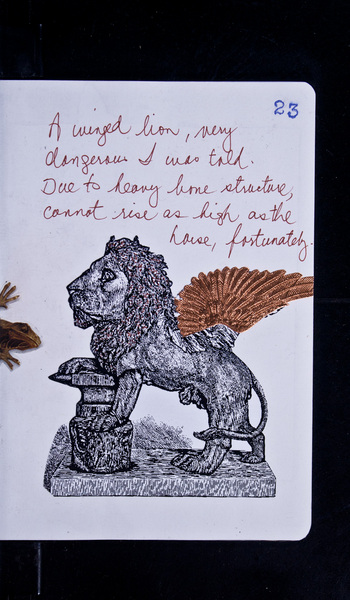 23
A winged lion, very
dangerous I was told.
Due to heavy bone structure,
cannot rise as high as the
horse, fortunately.